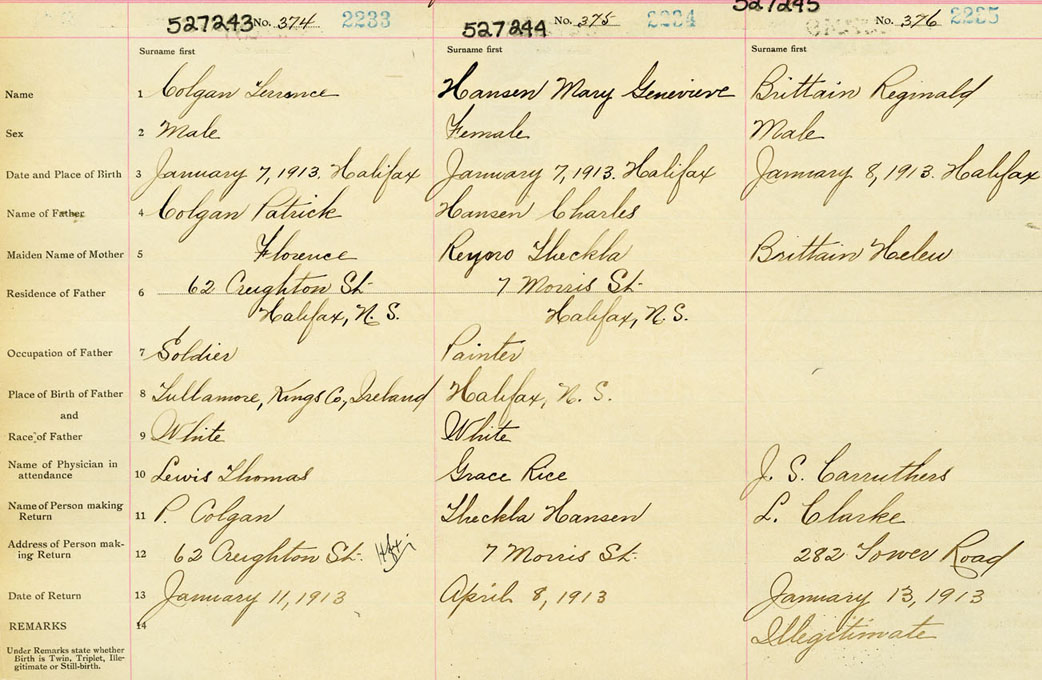 527243 No. 374 2233 527244 No. 375 2234 527245 No. 376 2235
Surname first Surname first Surname first
Name 1 Colgan Terrence Hansen Mary Genevieve Brittain Reginald
Sex 2 Male Female Male
Date and Place of Birth 3 January 7, 1913. Halifax January 7, 1913. Halifax January 8, 1913. Halifax
Name of Father 4 Colgan Patrick Hansen Charles
Maiden Name of Mother 5 Florence Theckla Brittain Helen
Residence of Father 6 62 Creighton St. 7 Morris St.
Halifax, N. S. Halifax, N. S.
Occupation of Father 7 Soldier Painter
Place of Birth of Father 8 Tullamore, Kings Co., Ireland Halifax, N. S.
and
Race of Father 9 White White
Name of Physician in
attendance 10 Lewis Thomas Grace Rice J. S. Carruthers
Name of Person making
Return 11 P. Colgan Theckla Hansen L. Clarke
Address of Person mak-
ing Return 12 62 Creighton St. 7 Morris St. 282 Tower Road
Date of Return 13 January 11, 1913 April 8, 1913 January 13, 1913
REMARKS 14 Illegitimate
Under Remarks state whether
Birth is Twin, Triplet, Ille-
gitimate or Still-birth.